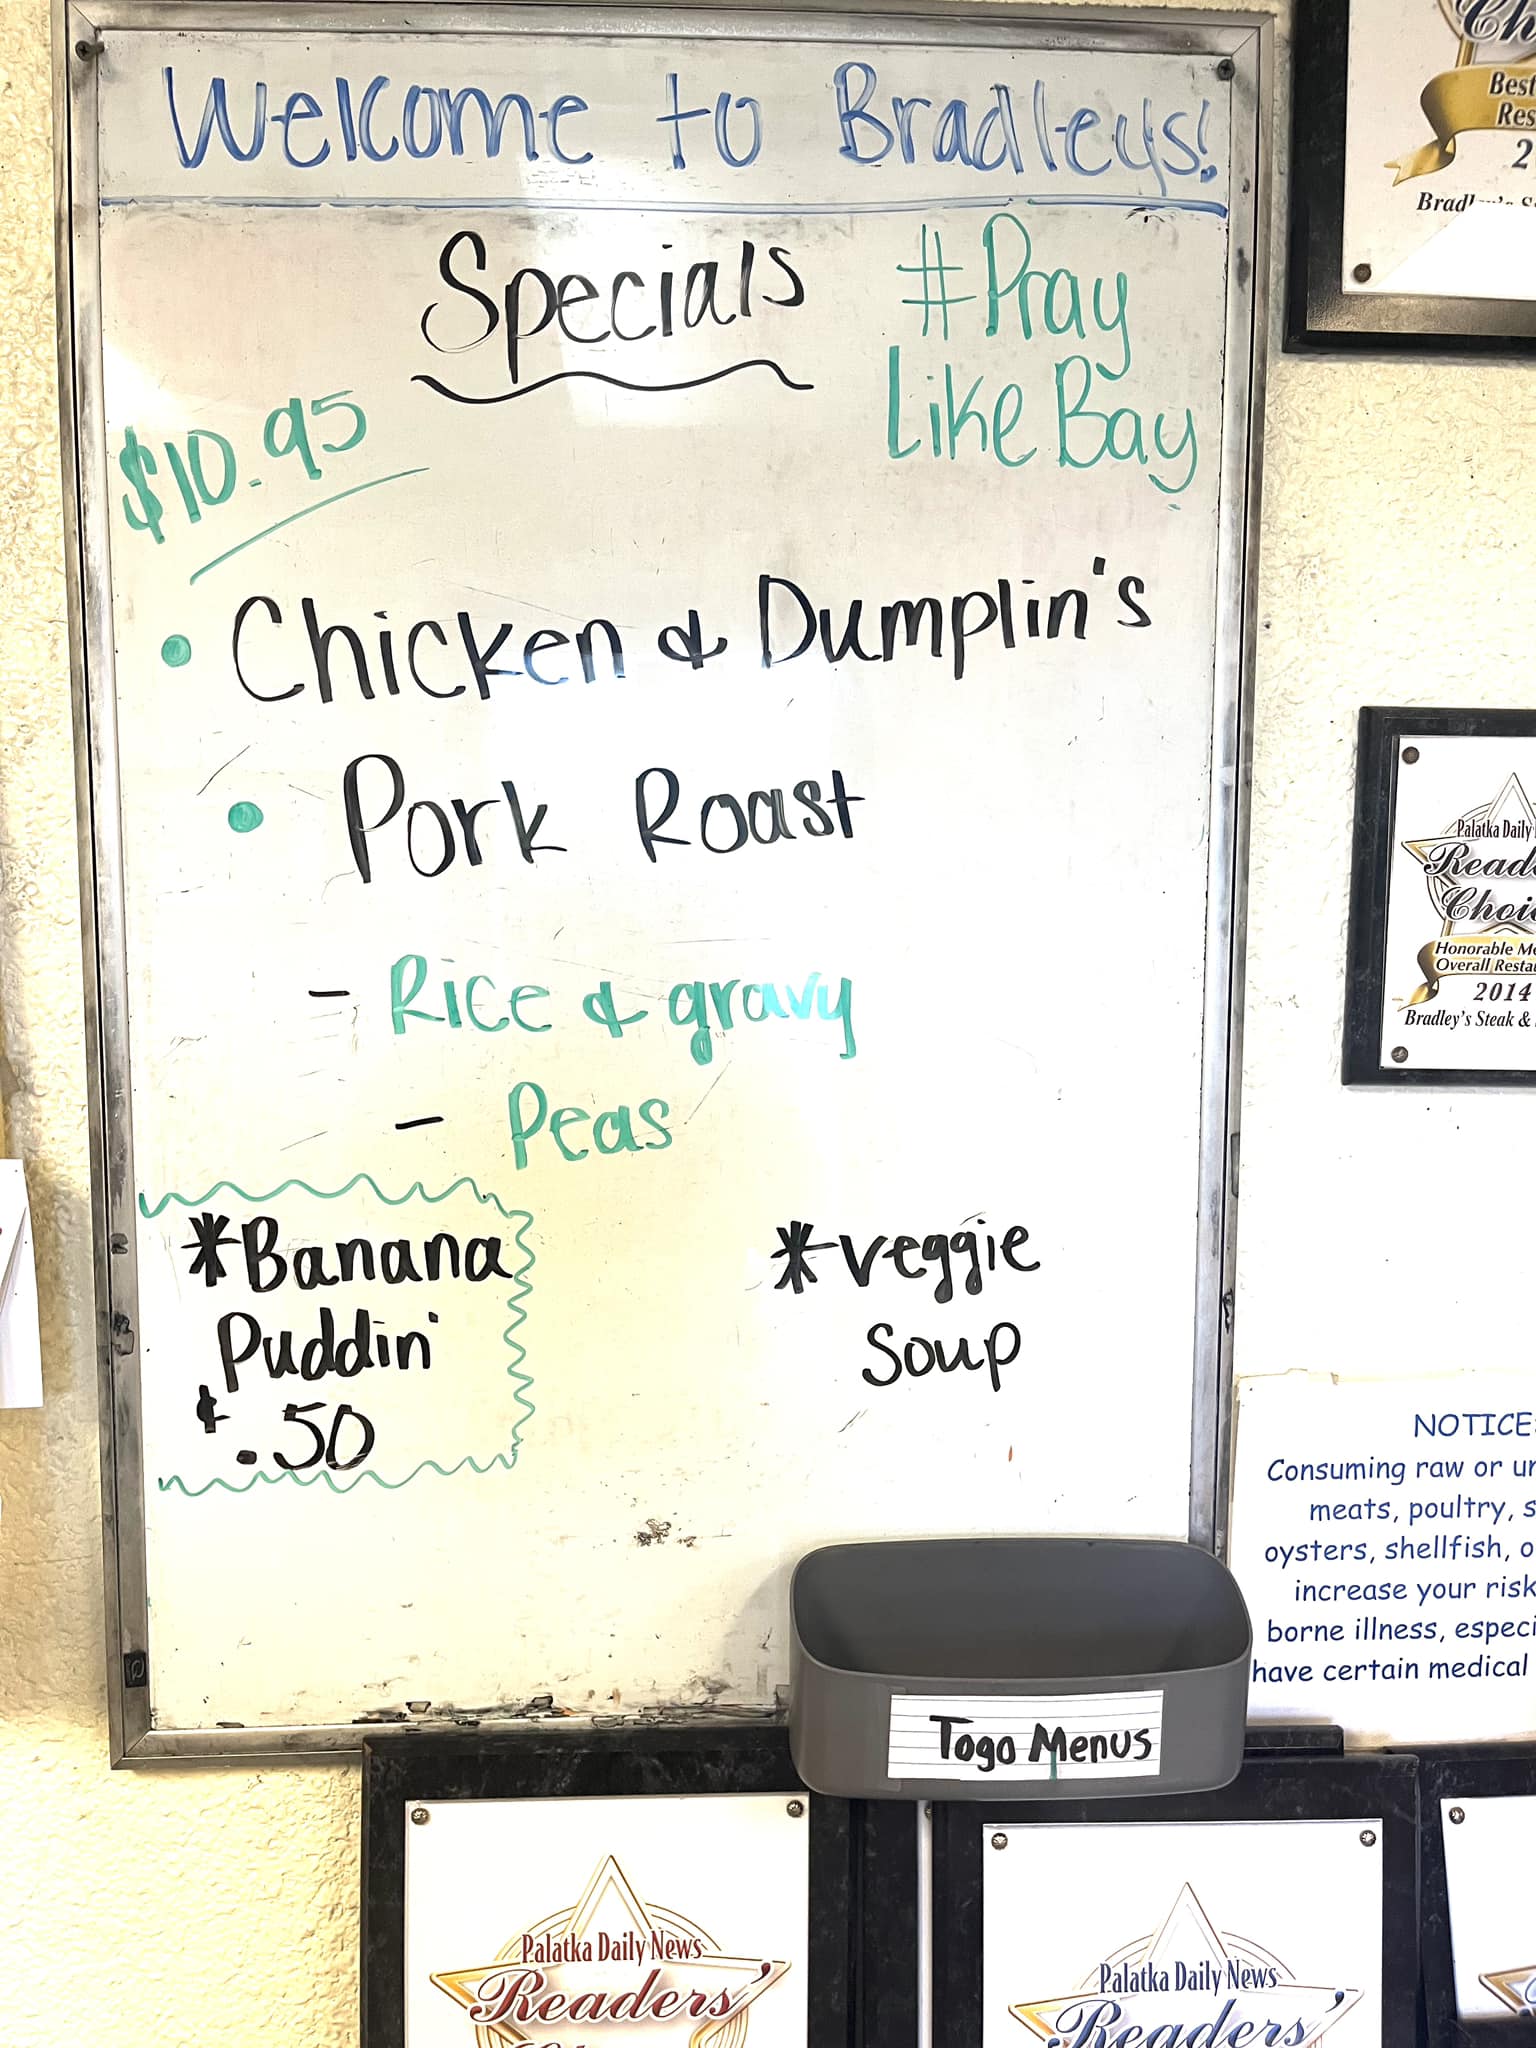 Welcome to Bradleys!
Specials
#Pray
Like Bay
$10.95
• Chicken & Dumplin's
• Pork Roast
- Rice & gravy
- Peas
*Banana
Puddin'
$.50
*Veggie
Soup
Togo Menus
Best
2
Palatka Daily
Honorable
Overall
2014
Bradley's Steak &
NOTICE
Consuming raw or
meats, poultry,
oysters, shellfish,
increase your risk
borne illness,
have certain medical
Palatka Daily News
Readers'
Palatka Daily News
Readers'